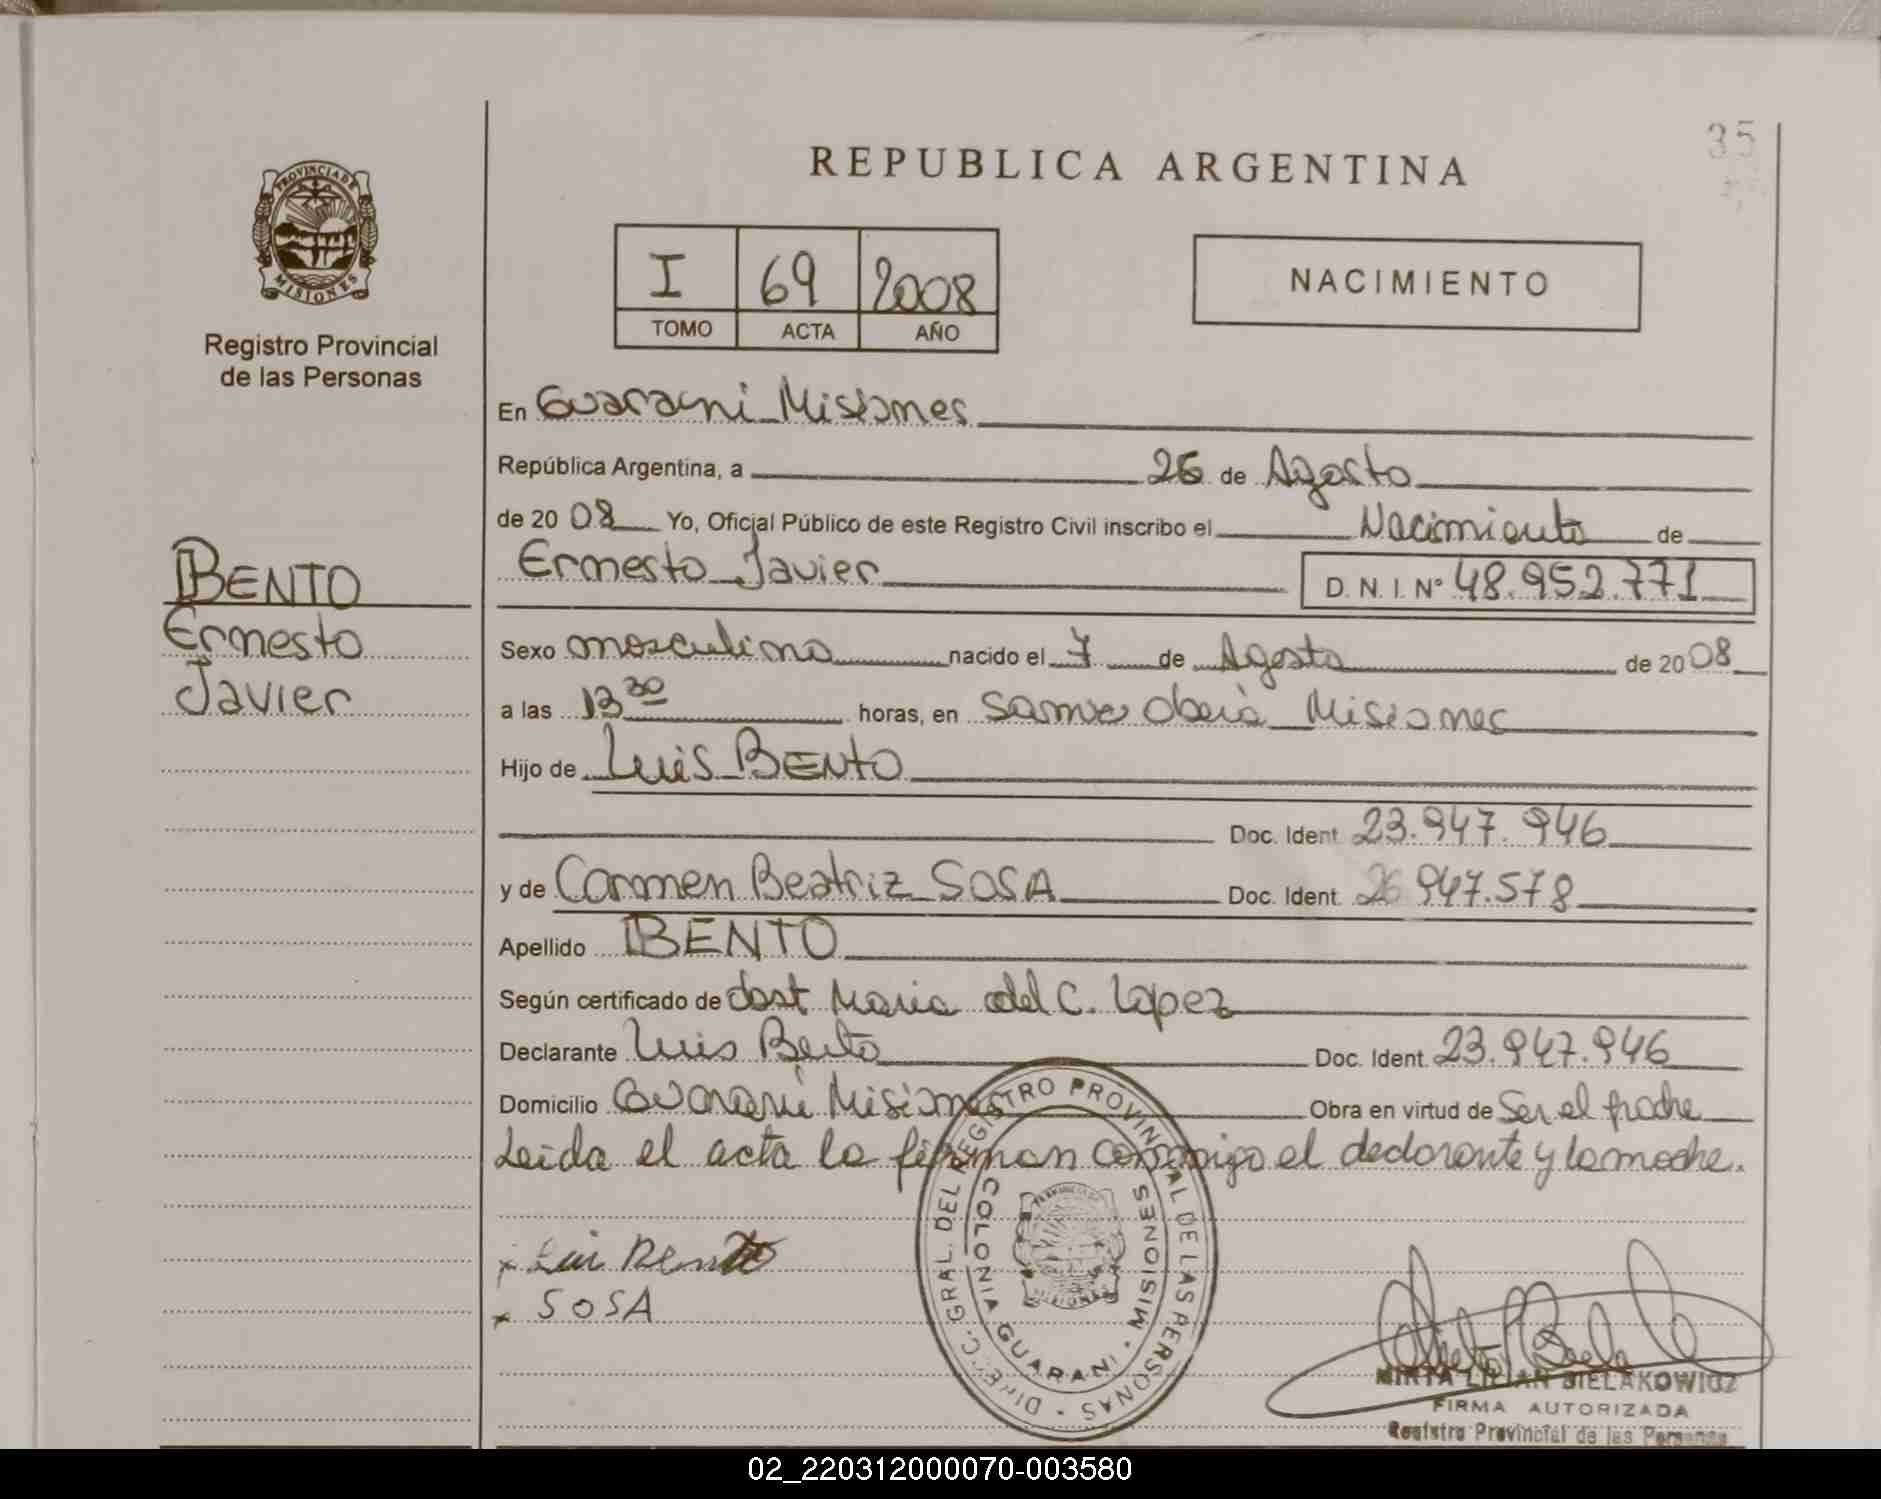 35
REPUBLICA ARGENTINA
PROVINCIA DE
MISIONES
Registro Provincial
de las Personas
I 69 2008
TOMO ACTA AÑO
NACIMIENTO
En Guarani Misiones
República Argentina, a 26 de Agosto
de 20 08 Yo, Oficial Público de este Registro Civil inscribo el Nacimiento de
Ernesto Javier D. N. I. Nº 48.952.771
BENTO
Ernesto
Javier
Sexo masculino nacido el 7 de Agosto de 20 08
a las 13 30 horas, en Oberá Misiones
Hijo de Luis BENTO
Doc. Ident. 23.947.946
y de Carmen Beatriz SOSA Doc. Ident. 26.947.578
Apellido BENTO
Según certificado de Obst Maria del C. Lopez
Declarante Luis Bento Doc. Ident. 23.947.946
Domicilio Guarani Misiones Obra en virtud de Ser el padre
Leida el acta la firman conmigo el declarante y la madre.
Lui Bento
SOSA
DIRECC. GRAL. DEL REGISTRO PROVINCIAL DE LAS PERSONAS
COLONIA GUARANI - MISIONES
MISIONES
MIRTA LILIAN BIELAKOWICZ
FIRMA AUTORIZADA
Registro Provincial de las Personas
02_220312000070-003580